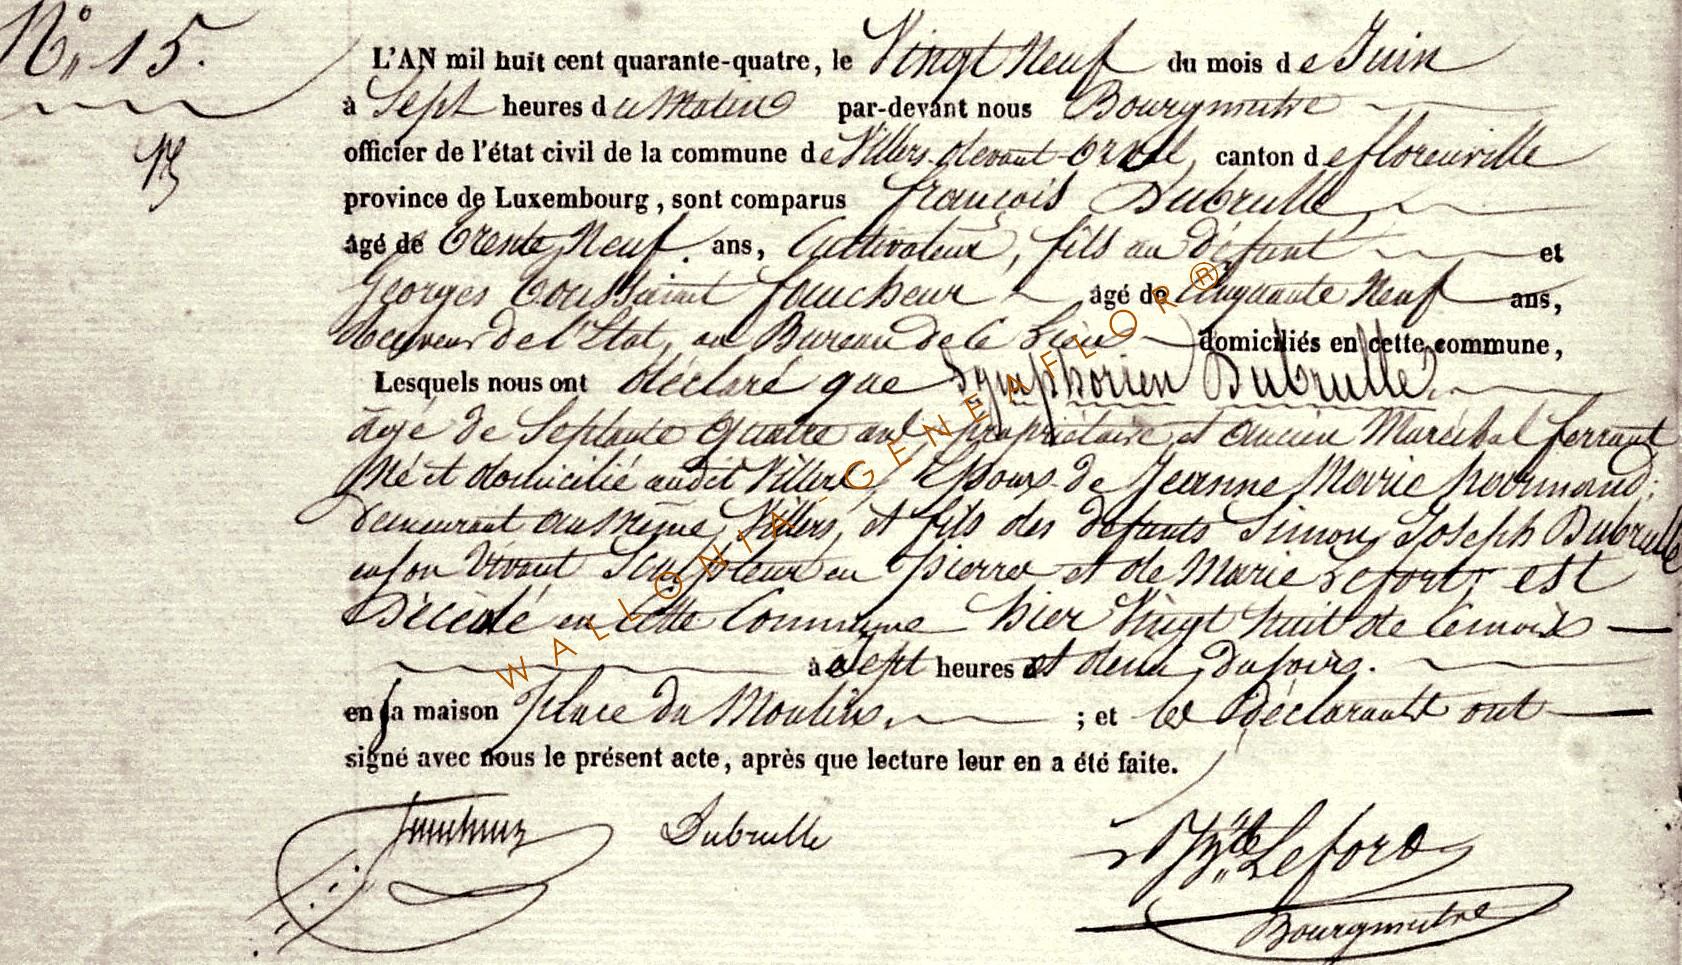 N° 15.
L'AN mil huit cent quarante-quatre, le Vingt Neuf du mois de Juin
à Sept heures du Matin par-devant nous Bourgmestre
officier de l'état civil de la commune de Villers devant Orval, canton de florenville
province de Luxembourg, sont comparus françois Dubrulle
âgé de trente Neuf ans, Cultivateur, fils au défunt et
Georges Toussaint faucheur âgé de Cinquante Neuf ans,
Receveur de l'Etat, au Bureau de ce Lieu domiciliés en cette commune,
Lesquels nous ont déclaré que Symphorien Dubrulle,
âgé de Septante Quatre ans propriétaire et ancien Maréchal ferrant
Né et domicilié audit Villers, Epoux de Jeanne Marie harmand;
Demeurant au Même Villers, et fils des défunts Simon Joseph Dubrulle
en son Vivant Sculpteur en pierres et de Marie Lefort, est
Décédé en Cette Commune hier Vingt huit de Ce mois
à Sept heures et demi du soir.
en sa maison place du Moulin, ; et les Déclarants ont
signé avec nous le présent acte, après que lecture leur en a été faite.
faucheur Dubrulle Lefort
Bourgmestre
WALLONIA-GENEAFLOR®